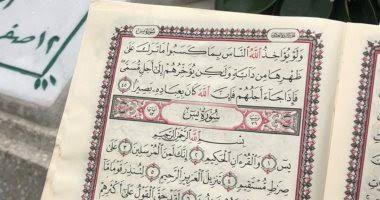 وَلَوْ يُؤَاخِذُ اللَّهُ النَّاسَ بِمَا كَسَبُوا مَا تَرَكَ عَلَىٰ
ظَهْرِهَا مِن دَابَّةٍ وَلَٰكِن يُؤَخِّرُهُمْ إِلَىٰ أَجَلٍ مُّسَمًّى
فَإِذَا جَاءَ أَجَلُهُمْ فَإِنَّ اللَّهَ كَانَ بِعِبَادِهِ بَصِيرًا ٤٥
سُورَةُ يسٓ
بِسْمِ اللَّهِ الرَّحْمَٰنِ الرَّحِيمِ
يسٓ ١ وَالْقُرْآنِ الْحَكِيمِ ٢ إِنَّكَ لَمِنَ الْمُرْسَلِينَ ٣ عَلَىٰ
صِرَاطٍ مُّسْتَقِيمٍ ٤ تَنزِيلَ الْعَزِيزِ الرَّحِيمِ ٥ لِتُنذِرَ قَوْمًا مَّا
لَقَدْ حَقَّ الْقَوْلُ عَلَىٰ أَكْثَرِهِمْ